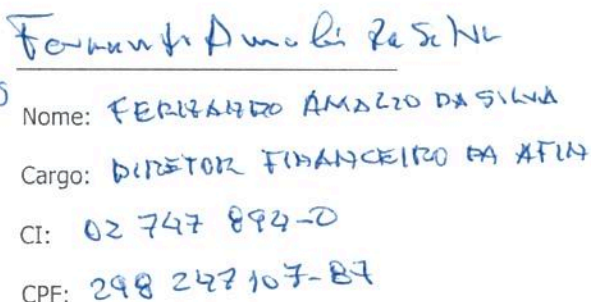 Fernando Amalio da Silva
Nome: FERNANDO AMALIO DA SILVA
Cargo: DIRETOR FINANCEIRO DA AFIN
CI: 02 747 894-0
CPF: 298 247 107-87